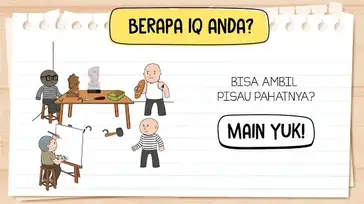 BERAPA IQ ANDA?
BISA AMBIL
PISAU PAHATNYA?
MAIN YUK!